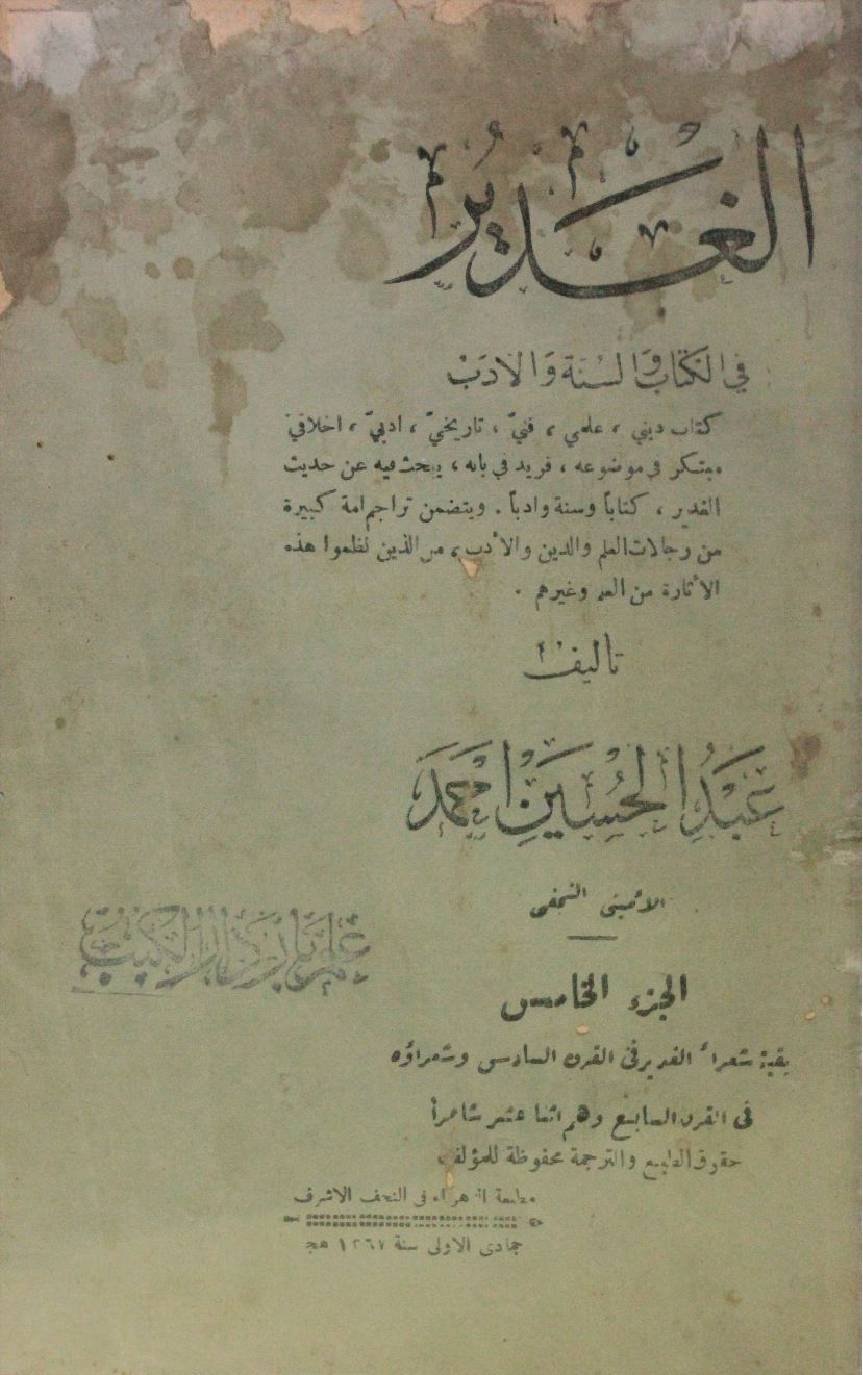 الغدير
في الكتاب والسنة والأدب
كتاب ديني ، علمي ، فنيّ ، تاريخيّ ، ادبيّ ، اخلاقيّ
مبتكر في موضوعه ، فريد في بابه ، يبحث فيه عن حديث
الغدير ، كتاباً وسنة وادباً . ويتضمن تراجم امة كبيرة
من رجالات العلم والدين والأدب ، من الذين نظموا هذه
الأثارة من العلم وغيرهم .
تأليف
عَبْدُ الحُسَيْنِ احْمَد
الأميني النجفي
الجزء الخامس
بقية شعراء الغدير في القرن السادس وشعراؤه
في القرن السابع وهم اثنا عشر شاعراً
حقوق الطبع والترجمة محفوظة للمؤلف
مطبعة الزهراء في النجف الاشرف
جمادى الاولى سنة ١٣٦٧ هج